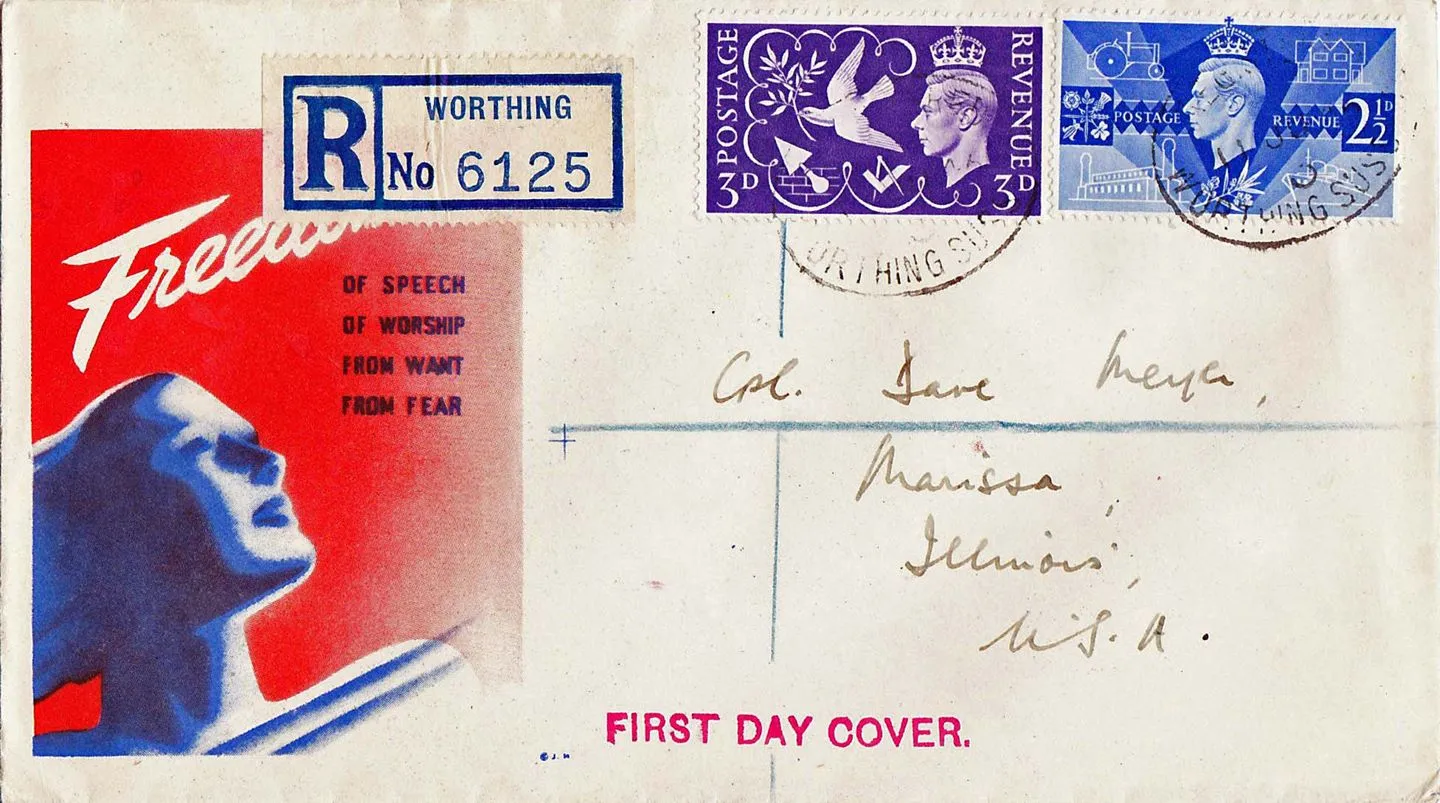 R
WORTHING
No 6125
POSTAGE
REVENUE
3D
3D
POSTAGE
REVENUE
2½D
WORTHING SUS
ORTHING SUS
11 JU
Freedom
OF SPEECH
OF WORSHIP
FROM WANT
FROM FEAR
Cpl. Dave Meyer,
Marissa,
Illinois,
U.S.A.
FIRST DAY COVER.